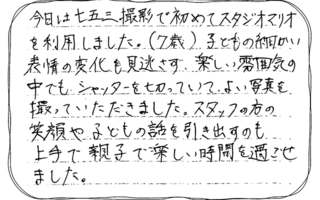 今日は七五三撮影で初めてスタジオマリオ
を利用しました。(7歳) 子どもの細かい
表情の変化も見逃さず 楽しい雰囲気の
中でも シャッターを切っていて、よい写真を
撮っていただきました。スタッフの方の
笑顔や 子どもの話を引き出すのも
上手で 親子で楽しい時間を過ごせ
ました。